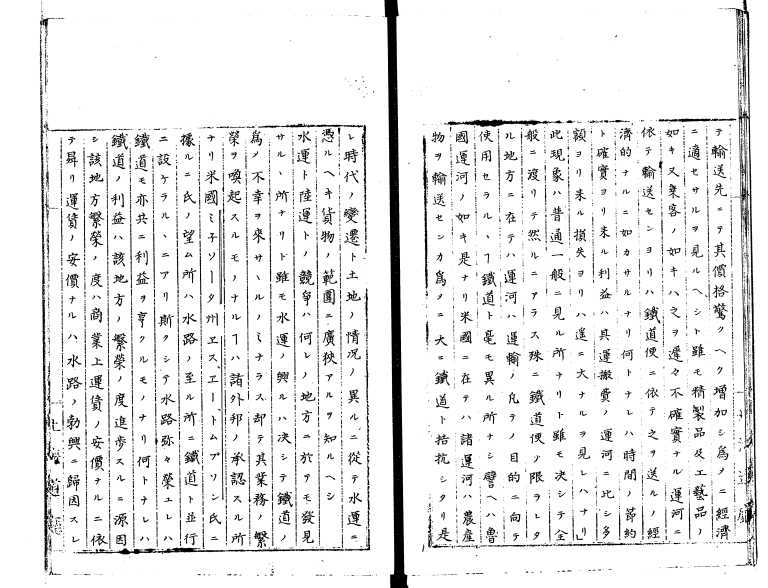 テ輸送先ニテ其價格驚クヘク增加シ爲メニ經濟
ニ適セサルヲ見ルヘシト雖モ精製品及工藝品ノ
如キ又乘客ノ如キハ之ヲ遲々不確實ナル運河ニ
依テ輸送センヨリハ鐵道便ニ依テ之ヲ送ルノ經
濟的ナルニ如カサルナリ何トナレハ時間ノ節約
ト確實ヨリ来ル利益ハ其運搬費ノ運河ニ比シ多
額ヨリ来ル損失ヨリハ遙ニ大ナルヲ見レハナリ
此現象ハ普通一般ニ見ル所ナリト雖モ决シテ全
般ニ渡リテ然ルニアラス殊ニ鐵道便ノ限ラレタ
ル地方ニ在テハ運河ハ運輸ノ凡テノ目的ニ向テ
使用セラルヽヿ鐵道ト毫モ異ル所ナシ譬ヘハ魯
國運河ノ如キ是ナリ米國ニ在テハ諸運河ハ農産
物ヲ輸送センカ爲メニ大ニ鐵道ト拮抗シタリ是
レ時代ノ變遷ト土地ノ情况ノ異ルニ從テ水運ニ
憑ルヘキ貨物ノ範圍ニ廣狹アルヲ知ルヘシ
水運ト陸運トノ競爭ハ何レノ地方ニ於テモ發見
サルヽ所ナリト雖モ水運ノ興ルハ决シテ鐵道ノ
爲メ不幸ヲ來サヽルノミナラス却テ其業務ノ繁
榮ヲ喚起スルモノナルヿハ諸外邦ノ承認スル所
ナリ米國ミ子ソータ州ヱス、エー、トムプソン氏ニ
據ルニ氏ノ望ム所ハ水路ノ至ル所ニ鐵道ト並行
ニ設ケラルヽニアリ斯クシテ水路弥々榮エレハ
鐵道モ亦共ニ利益ヲ享クルモノナリ何トナレハ
鐵道ノ利益ハ該地方ノ繁榮ノ度進歩スルニ源因
シ該地方繁榮ノ度ハ商業上運賃ノ安價ナルニ依
テ昇リ運賃ノ安價ナルハ水路ノ勃興ニ歸因スレ